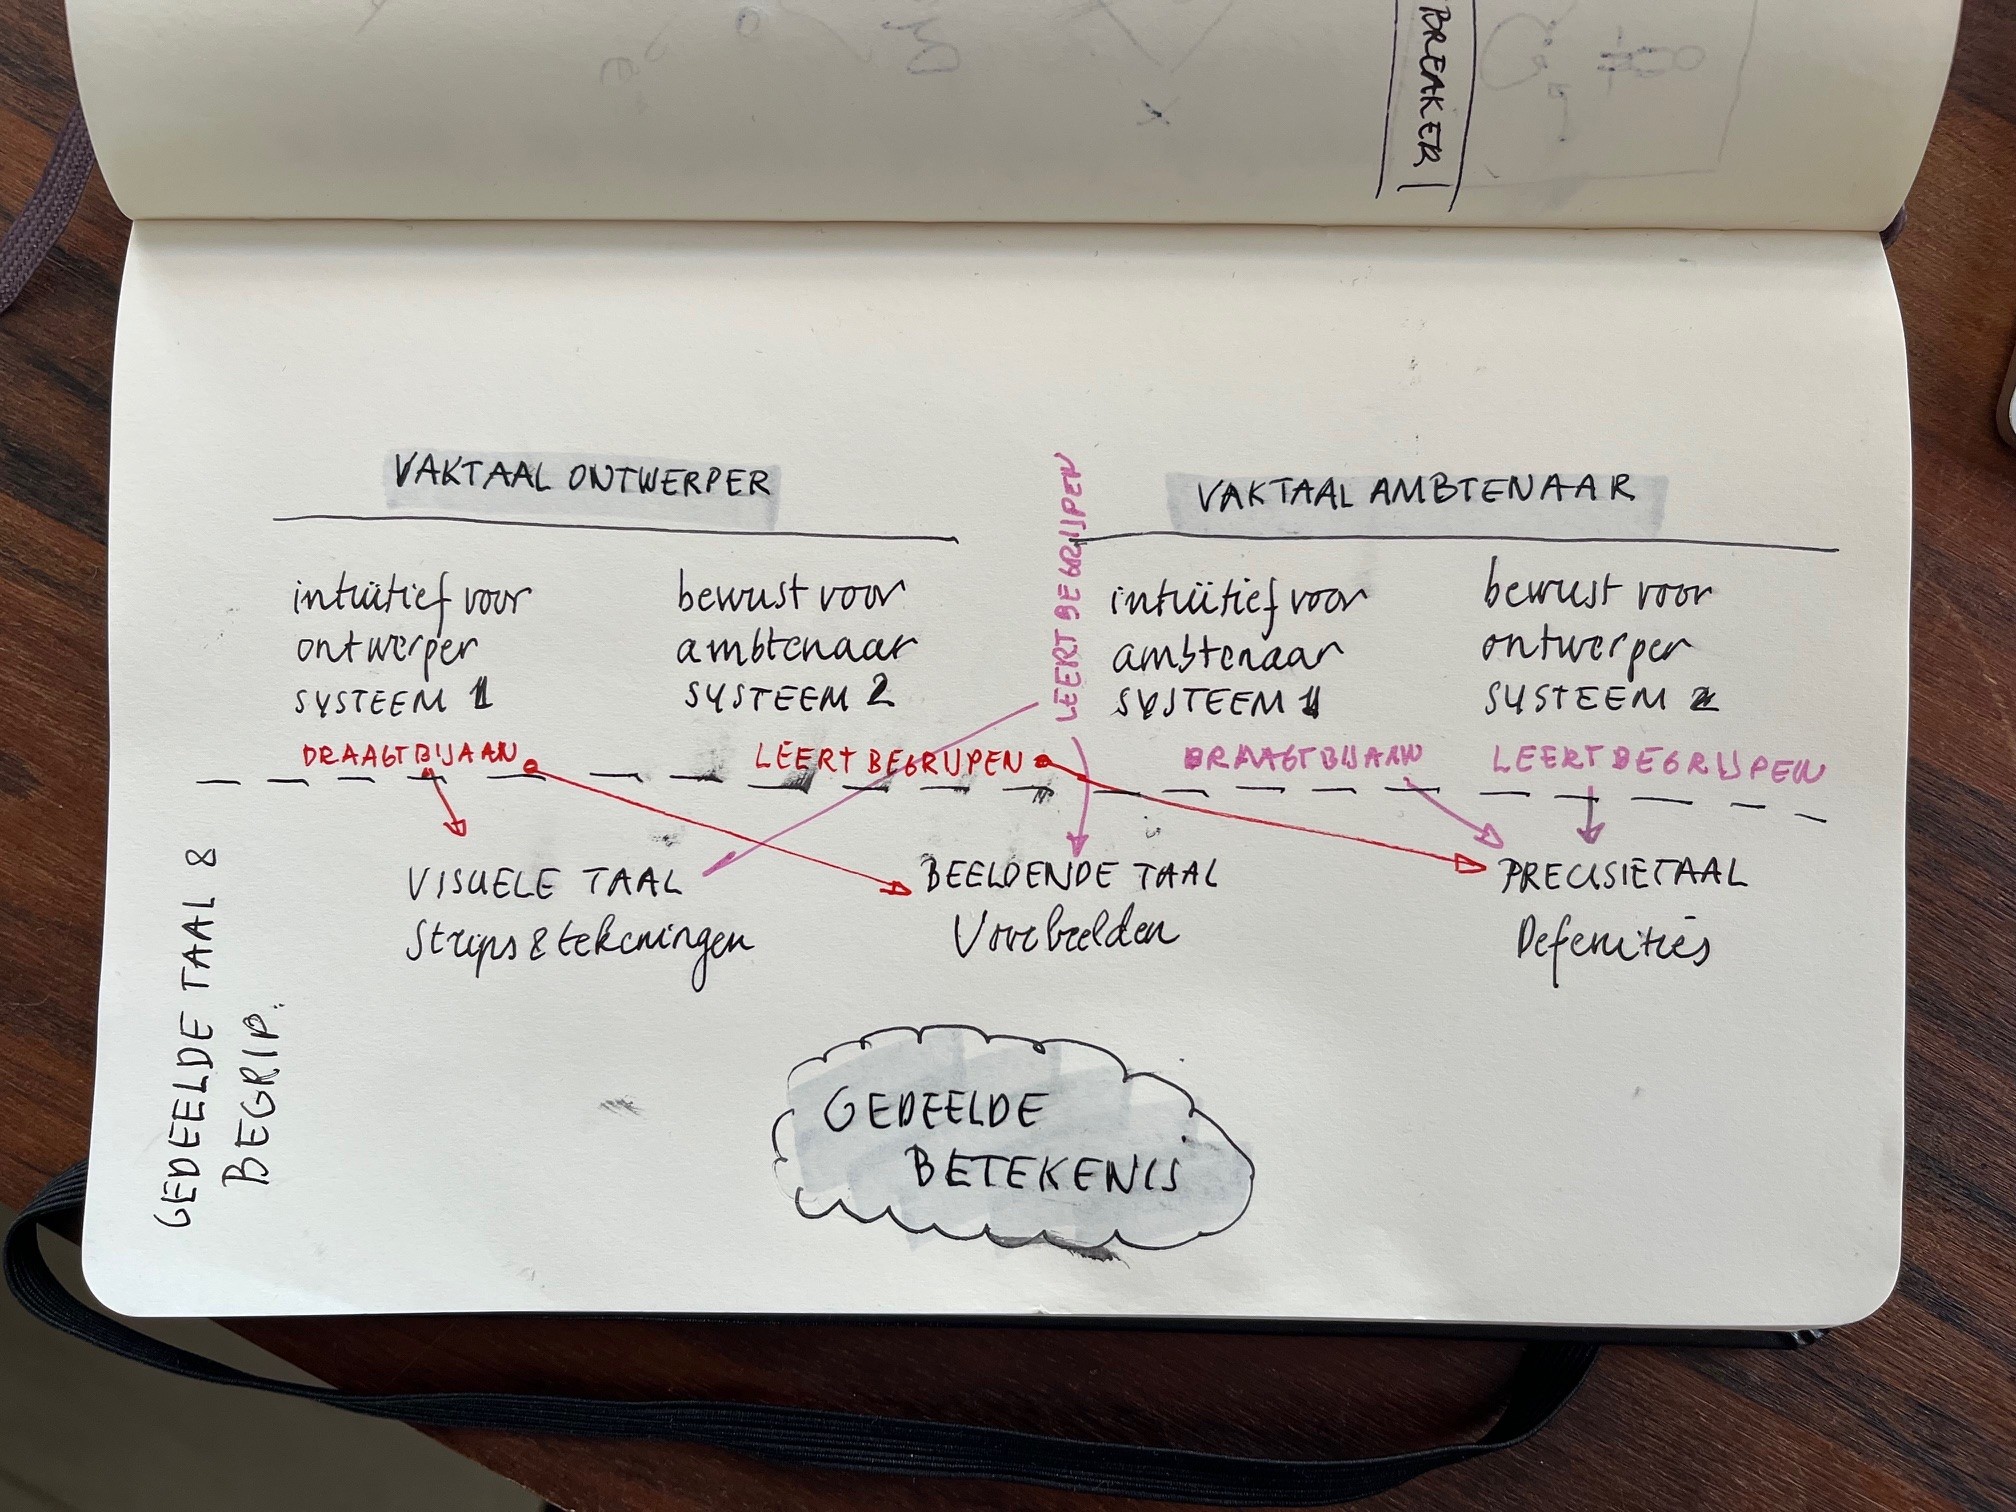 BREAKER
VAKTAAL ONTWERPER
intuïtief voor
ontwerper
SYSTEEM 1
bewust voor
ambtenaar
SYSTEEM 2
DRAAGT BIJ AAN
LEERT BEGRIJPEN
LEERT BEGRIJPEN
VAKTAAL AMBTENAAR
intuïtief voor
ambtenaar
SYSTEEM 1
bewust voor
ontwerper
SYSTEEM 2
DRAAGT BIJ AAN
LEERT BEGRIJPEN
GEDEELDE TAAL &
BEGRIP.
VISUELE TAAL
Strips & tekeningen
BEELDENDE TAAL
Voorbeelden
PRECISIETAAL
Defenities
GEDEELDE
BETEKENIS